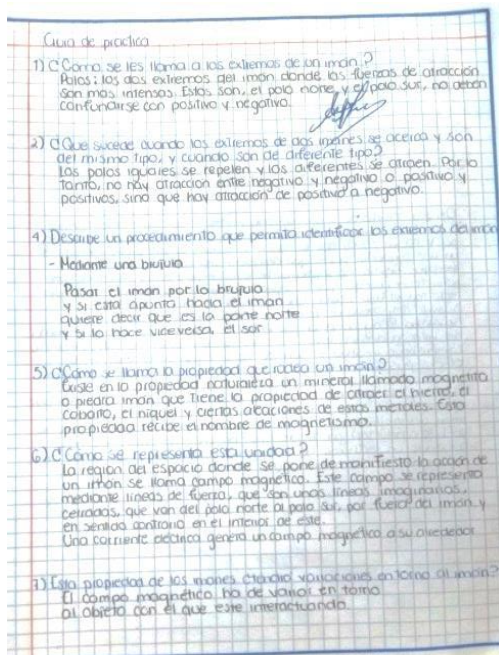 Guia de practica
1) ¿Cómo se les llama a los extremos de un iman?
Polos: los dos extremos del iman donde las fuerzas de atracción
son mas intensas. Estos son, el polo norte y el polo sur, no deben
confundirse con positivo y negativo.
2) ¿Que sucede cuando los extremos de dos imanes se acerca y son
del mismo tipo, y cuando son de diferente tipo?
Los polos iguales se repelen y los diferentes se atraen. Por lo
tanto, no hay atraccion entre negativo y negativo o positivo y
positivos, sino que hay atracción de positivo a negativo.
4) Describe un procedimiento que permita identificar los extremos del iman
- Mediante una brujula
Pasar el iman por la brujula
y si esta apunta hacia el iman
quiere decir que es la parte norte
y si lo hace viceversa, el sur
5) ¿Cómo se llama la propiedad que rodea un imán?
Existe en la propiedad naturaleza un mineral llamado magnetita
o piedra iman que tiene la propiedad de atraer el hierro, el
cobalto, el niquel y ciertas aleaciones de estos metales. Esta
propiedad recibe el nombre de magnetismo.
6) ¿Cómo se representa esta unidad?
La región del espacio donde se pone de manifiesto la acción de
un imán se llama campo magnético. Este campo se representa
mediante lineas de fuerza, que son unas líneas imaginarias,
cerradas, que van del polo norte al polo sur, por fuera del imán y
en sentido contrario en el interior de este.
Una corriente eléctrica genera un campo magnético a su alrededor
7) Esta propiedad de los imanes variaciones en torno al imán?
El campo magnético ha de variar en torno
al objeto con el que este interactuando.